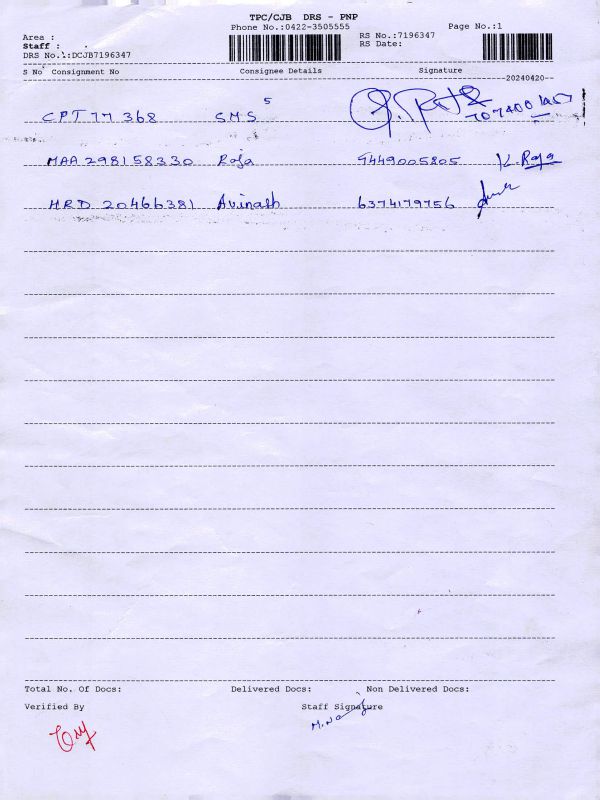 TPC/CJB DRS - PNP
Phone No.:0422-3505555 Page No.:1
Area : RS No.:7196347
Staff : RS Date:
DRS No.:DCJB7196347
S No Consignment No Consignee Details Signature
20240420
CPT 77 368 SMS 5
MAA 298158330 Roja 9449005805 K. Raja
HRD 20466381 Avinash 6374179756
Total No. Of Docs: Delivered Docs: Non Delivered Docs:
Verified By Staff Signature